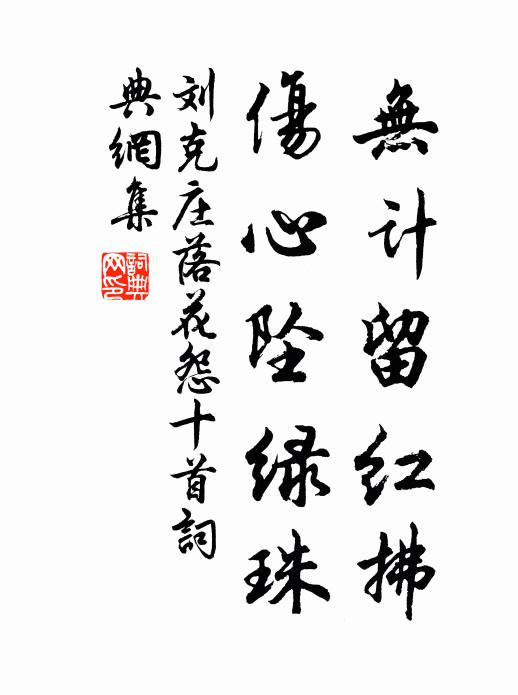 無计留红拂
傷心坠绿珠
刘克庄落花怨十首詞
典網集
詞典网印